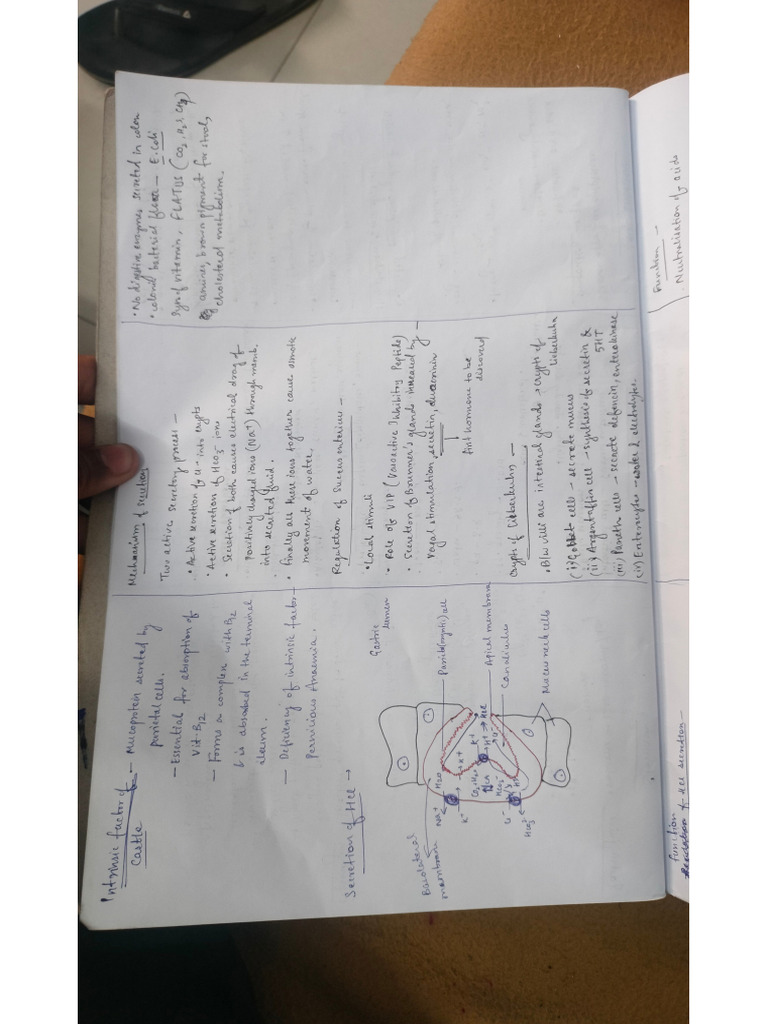 Intrinsic factor of
Castle
— Mucoprotein secreted by
parietal cells.
— Essential for absorption of
Vit-B12
— Forms a complex with B12
& is absorbed in the terminal
ileum.
— Deficiency of intrinsic factor —
Pernicious Anaemia.
Secretion of HCl →
Gastric
lumen
Basolateral
membrane
Parietal (oxyntic) cell
Apical membrane
Canaliculus
Mucus neck cells
Na+
K+
H2O
K+
K+
H+
HCl
Cl-
CO2 + H2O
CA
HCO3-
Cl-
HCO3-
Mechanism of secretion
Two active secretory process —
• Active secretion of Cl- into crypts
• Active secretion of HCO3- ions
• Secretion of both causes electrical drag of
positively charged ions (Na+) through memb.
into secreted fluid.
• Finally all these ions together cause osmotic
movement of water.
Regulation of Succus entericus —
• Local stimuli
• Role of VIP (Vasoactive Inhibitory Peptide)
• Secretion of Brunner's glands increased by —
Vagal stimulation, secretin,
first hormone to be
discovered
Crypts of Lieberkuhn —
• B/w villi are intestinal glands → crypts of
Lieberkuhn
(i) Goblet cells — secrete mucus
(ii) Argentaffin cell — synthesis of secretin &
5HT
(iii) Paneth cells — secrete defencin, enterokinase
(iv) Enterocytes — water & electrolytes
• No digestive enzymes secreted in colon
• colonic bacterial flora — E. coli
Syn of vitamin, FLATUS (CO2, H2 & CH4)
amines, brown pigment for stool,
cholesterol metabolism.
Function
of HCl secretion —
Function —
Neutralisation of acids